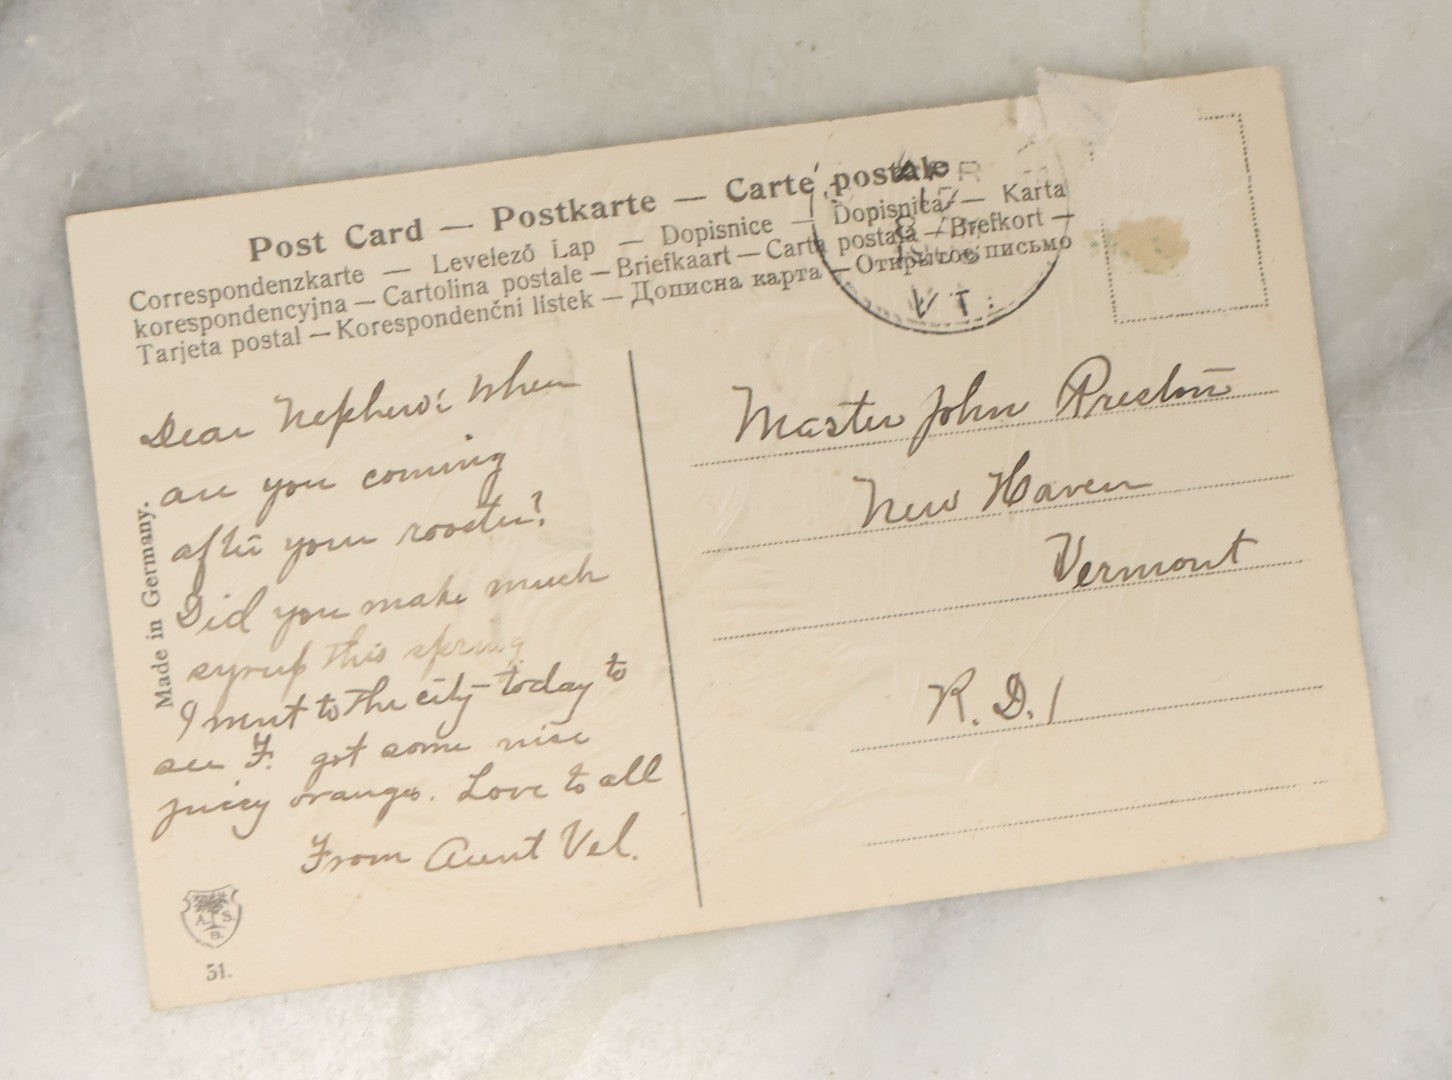 Post Card — Postkarte — Carte postale
Correspondenzkarte — Levelező Lap — Dopisnice — Dopisnica — Karta
korespondencyjna — Cartolina postale — Briefkaart — Carta postala — Brefkort —
Tarjeta postal — Korespondenčni listek — Дописна карта — Открытое письмо
APR
VT.
Dear Nephew: When
are you coming
after your rooster?
Did you make much
syrup this spring
I went to the city today to
see F. got some nice
juicy oranges. Love to all
From Aunt Vel.
Made in Germany.
A. S.
B.
51.
Master John Preston
New Haven
Vermont
R. D. 1